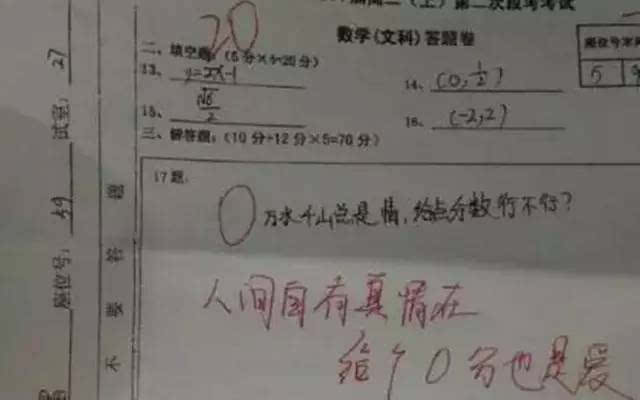 (上)第二次段考考试
数学(文科)答题卷
20
二、填空题:(5分×4=20分)
13、y=2x-1
14、(0,1/2)
15、√6/2
16、(-2,2)
三、解答题:(10分+12分×5=70分)
17题:
0
万水千山总是情,给点分数行不行?
人间自有真情在
给个0分也是爱
座位号
5
试室:27
座位号:39
不要答题